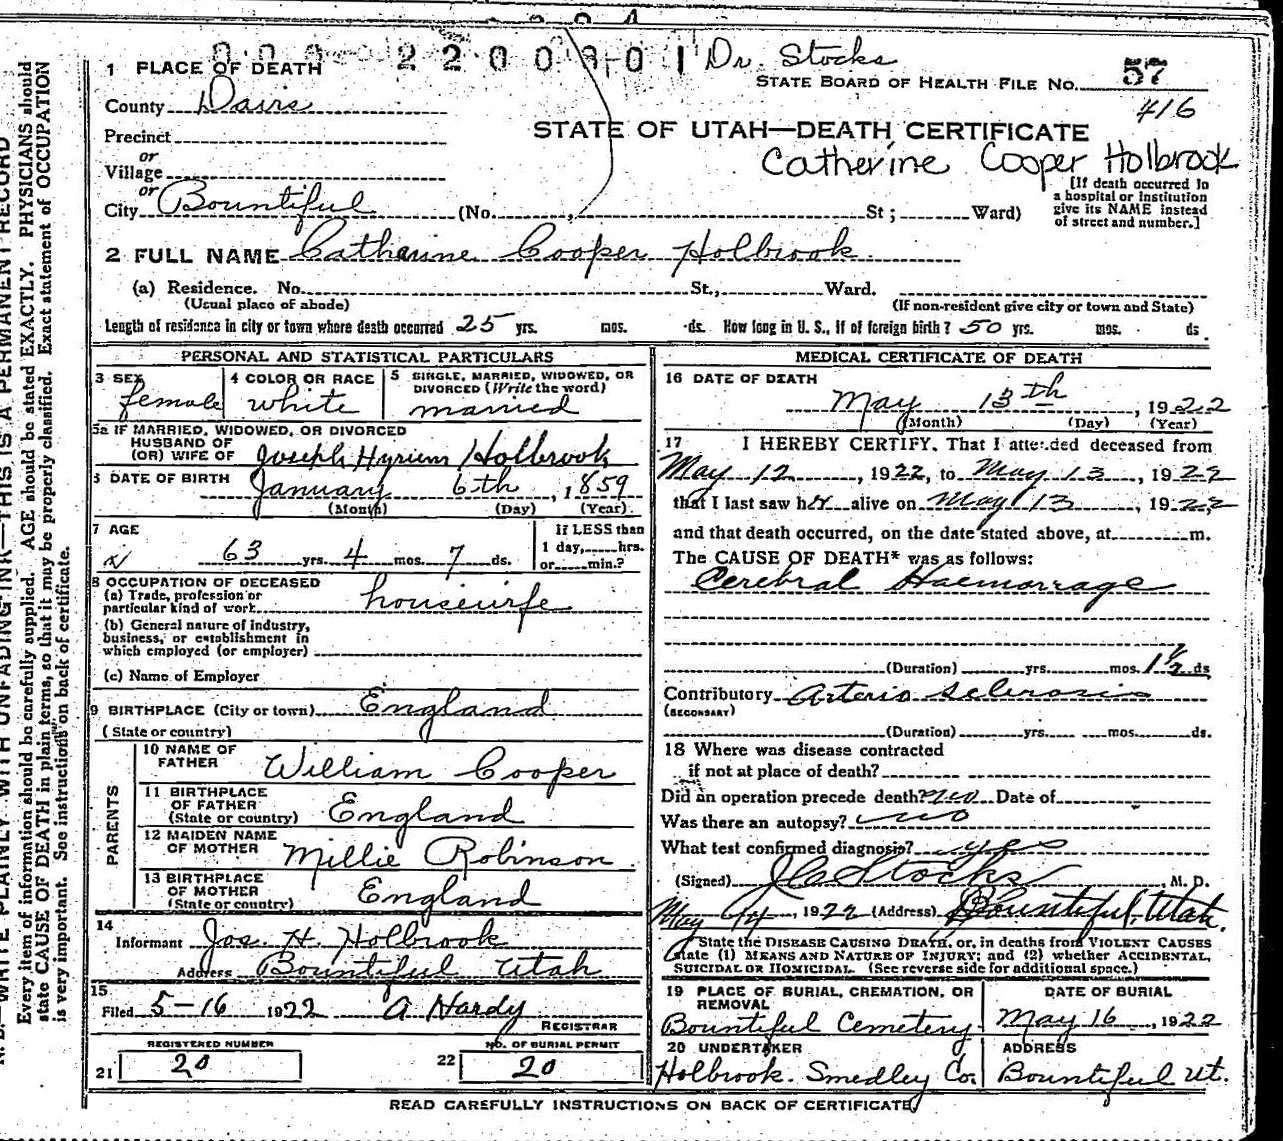 000 2200001 Dr. Stocks
1 PLACE OF DEATH
STATE BOARD OF HEALTH FILE NO. 57
County Davis
416
Precinct
STATE OF UTAH—DEATH CERTIFICATE
or
Village
Catherine Cooper Holbrook
or
City Bountiful (No. , St ; Ward)
[If death occurred in
a hospital or institution
give its NAME instead
of street and number.]
2 FULL NAME Catharine Cooper Holbrook
(a) Residence. No. St., Ward.
(Usual place of abode) (If non-resident give city or town and State)
Length of residence in city or town where death occurred 25 yrs. mos. ds. How long in U. S., if of foreign birth? 50 yrs. mos. ds
PERSONAL AND STATISTICAL PARTICULARS
3 SEX female
4 COLOR OR RACE white
5 SINGLE, MARRIED, WIDOWED, OR
DIVORCED (Write the word)
married
5a IF MARRIED, WIDOWED, OR DIVORCED
HUSBAND OF
(OR) WIFE OF Joseph Hyrum Holbrook
6 DATE OF BIRTH January 6th, 1859
(Month) (Day) (Year)
7 AGE
63 yrs. 4 mos. 7 ds.
If LESS than
1 day, hrs.
or min.?
8 OCCUPATION OF DECEASED
(a) Trade, profession or
particular kind of work housewife
(b) General nature of industry,
business, or establishment in
which employed (or employer)
(c) Name of Employer
9 BIRTHPLACE (City or town) England
(State or country)
PARENTS
10 NAME OF
FATHER William Cooper
11 BIRTHPLACE
OF FATHER
(State or country) England
12 MAIDEN NAME
OF MOTHER Millie Robinson
13 BIRTHPLACE
OF MOTHER
(State or country) England
14
Informant Jos. H. Holbrook
Address Bountiful Utah
15
Filed 5-16 1922 A Hardy
REGISTRAR
REGISTERED NUMBER
21 20
NO. OF BURIAL PERMIT
22 20
MEDICAL CERTIFICATE OF DEATH
16 DATE OF DEATH
May 13th, 1922
(Month) (Day) (Year)
17 I HEREBY CERTIFY, That I attended deceased from
May 12, 1922, to May 13, 1922
that I last saw her alive on May 13, 1922
and that death occurred, on the date stated above, at m.
The CAUSE OF DEATH* was as follows:
Cerebral Haemorrage
(Duration) yrs. mos. 1 1/2 ds
Contributory Arterio sclerosis
(SECONDARY)
(Duration) yrs. mos. ds.
18 Where was disease contracted
if not at place of death?
Did an operation precede death? no Date of
Was there an autopsy? no
What test confirmed diagnosis? yes
(Signed) J C Stocks M. D.
May 14, 1922 (Address) Bountiful, Utah.
State the DISEASE CAUSING DEATH, or, in deaths from VIOLENT CAUSES
state (1) MEANS AND NATURE OF INJURY; and (2) whether ACCIDENTAL,
SUICIDAL OR HOMICIDAL. (See reverse side for additional space.)
19 PLACE OF BURIAL, CREMATION, OR
REMOVAL
Bountiful Cemetery
DATE OF BURIAL
May 16, 1922
20 UNDERTAKER
Holbrook-Smedley Co.
ADDRESS
Bountiful Ut.
READ CAREFULLY INSTRUCTIONS ON BACK OF CERTIFICATE
N. B.—WRITE PLAINLY WITH UNFADING INK—THIS IS A PERMANENT RECORD
Every item of information should be carefully supplied. AGE should be stated EXACTLY. PHYSICIANS should
state CAUSE OF DEATH in plain terms, so that it may be properly classified. Exact statement of OCCUPATION
is very important. See instructions on back of certificate.